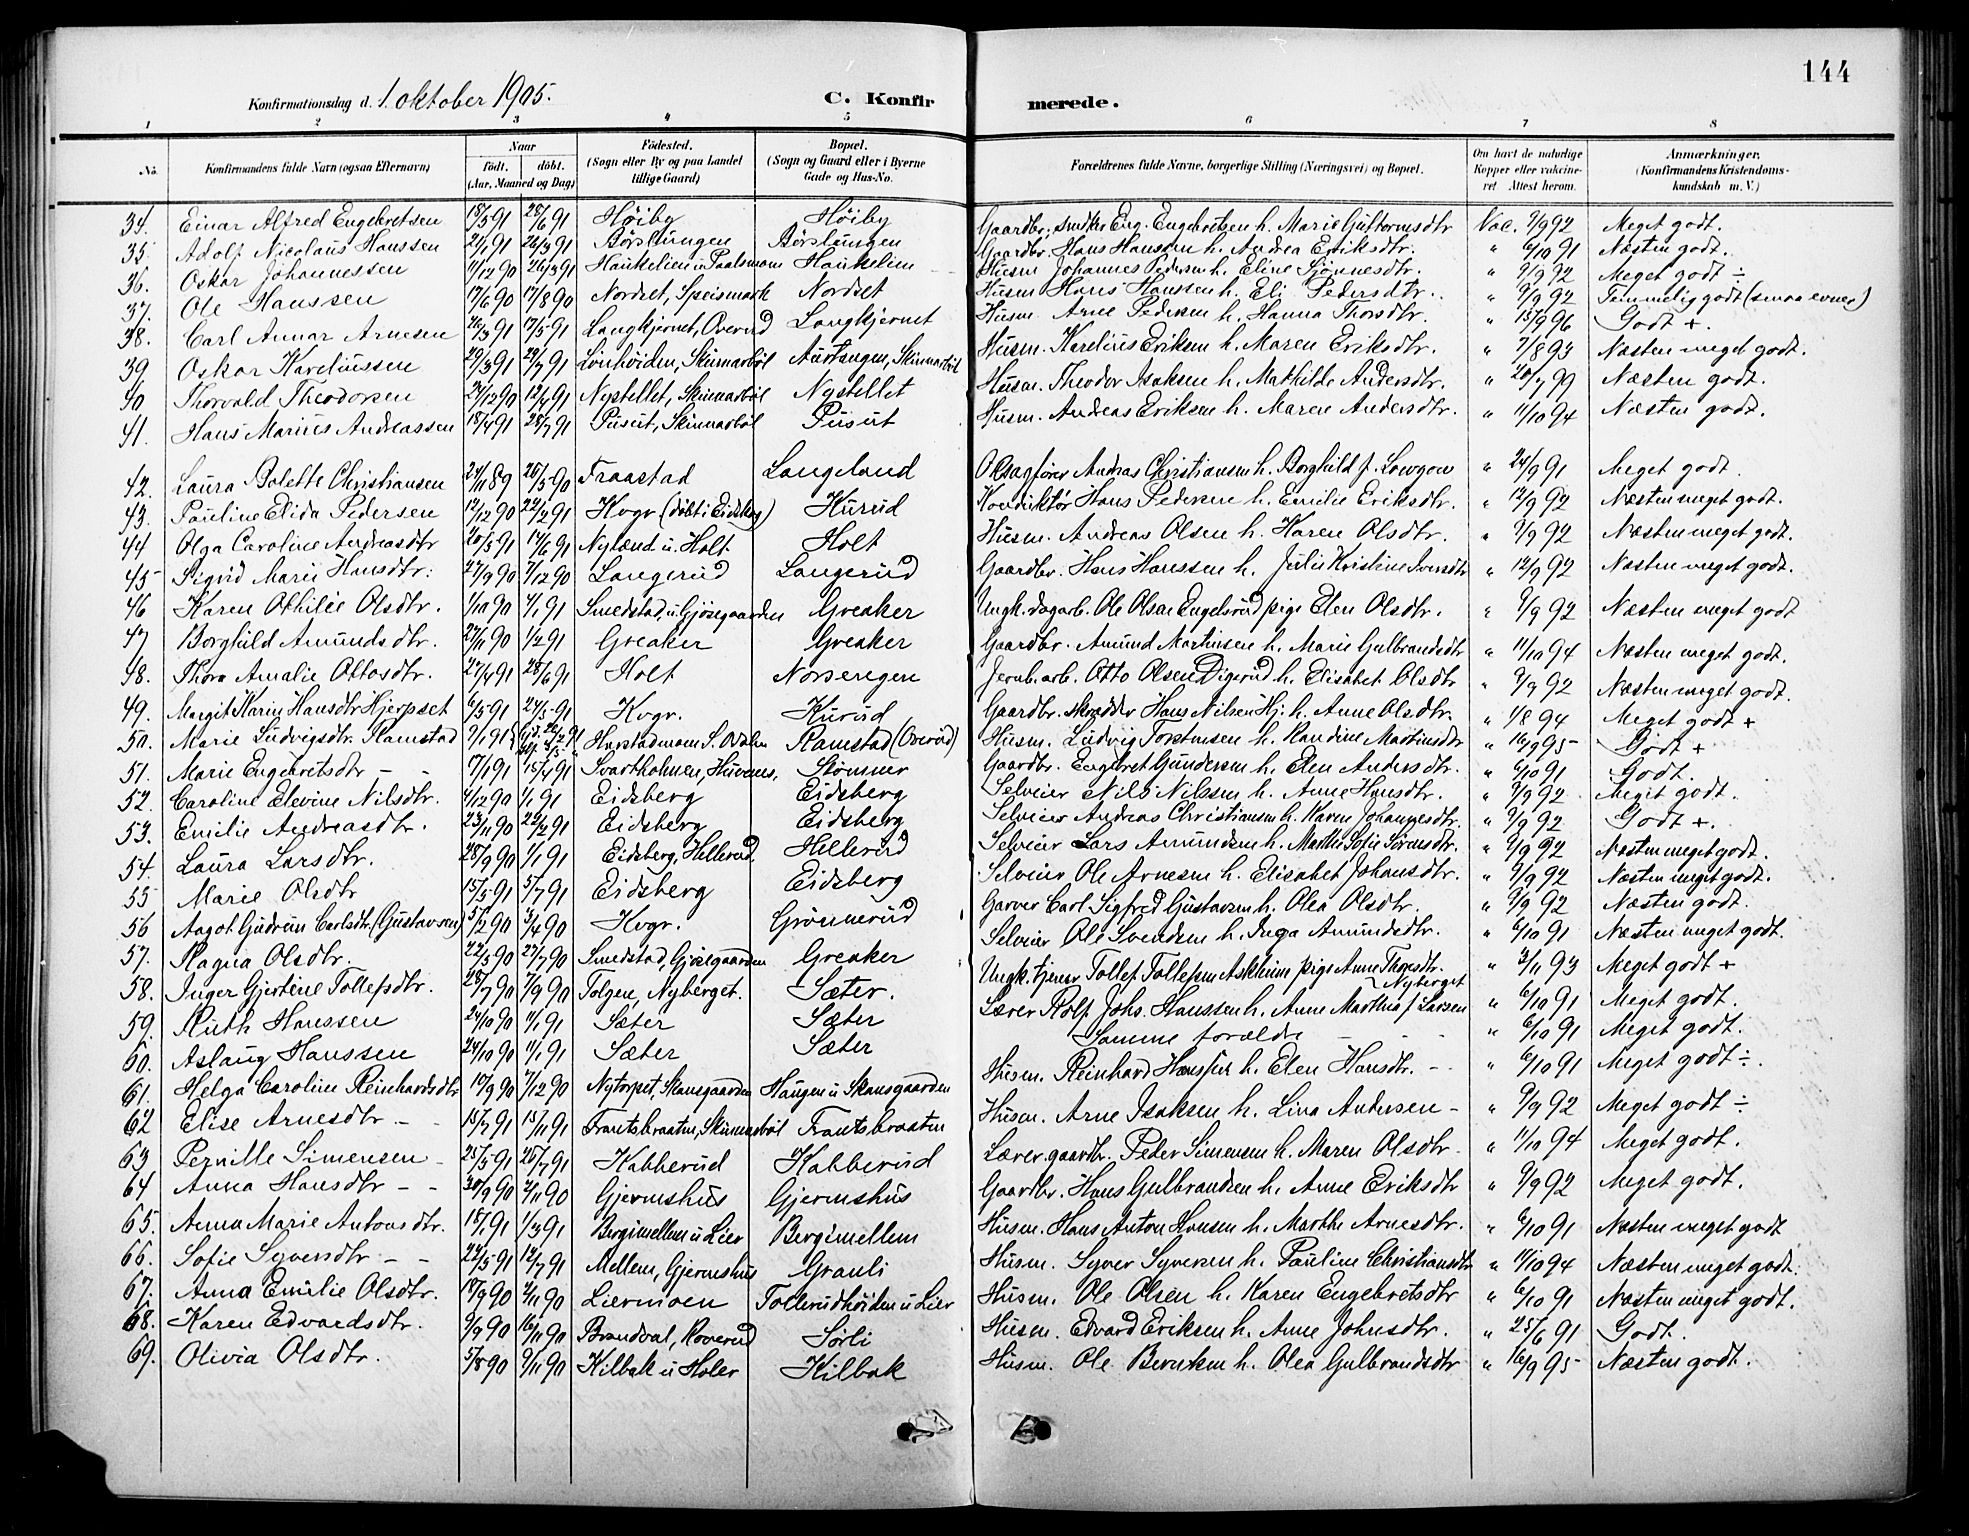 144
Konfirmationsdag d. 1. oktober 1905. C. Konfirmerede.
1 2 3 4 5 6 7 8
No. Konfirmandens fulde Navn (ogsaa Efternavn) Naar født. døbt. (Aar, Maaned og Dag) Fødested. (Sogn eller By og paa Landet tillige Gaard) Bopæl. (Sogn og Gaard eller i Byerne Gade og Hus-No. Forældrenes fulde Navne, borgerlige Stilling (Næringsvei) og Bopæl. Om havt de naturlige Kopper eller vaccineret. Attest herom. Anmærkninger. (Konfirmandens Kristendomskundskab m. V.)
34. Einar Alfred Engebretsen 18/5 91 28/6 91 Høiby Høiby Gaardbr, smke Eng. Engebretsen h. Marie Guttormsdtr Vac. 9/9 92 Meget godt.
35. Adolf Nicolaus Hanssen 21/1 91 26/3 91 Børslungen Børslungen Gaardbr. Hans Hanssen h. Andrea Eriksdtr. " 6/10 91 Næsten godt.
36. Oskar Johannessen 11/12 90 26/3 91 Haukelien u Paalsmoen Haukelien Husm Johannes Pedersen h. Eline Sjønnesdtr. " 9/9 92 Meget godt ÷
37. Ole Hanssen 17/6 90 17/8 90 Nordset, Speismark Nordset Husm Hans Hanssen h. Eli Pedersdtr. " 9/9 92 Temmelig godt (smaa evner)
38. Carl Annar Arnesen 26/3 91 17/5 91 Langkjernet, Overud Langkjernet Husm Arne Pedersen h. Hanna Thorsdtr. " 15/9 96 Godt +.
39 Oskar Kareliussen 29/3 91 29/7 91 Lønhøiden, Skinnarbøl Aurtangen, Skinnarbøl Husm. Karelius Eriksen h. Maren Eriksdtr. " 7/8 93 Næsten meget godt.
40 Thorvald Theodorsen 21/12 90 12/4 91 Nystellet, Skinnarbøl Nystellet Husm. Theodor Isaksen h. Mathilde Andersdtr. " 20/7 99 Næsten godt.
41. Hans Marius Andreassen 18/4 91 28/7 91 Pusut, Skinnarbøl Pusut Husm. Andreas Eriksen h. Maren Andersdtr. " 11/10 94 Næsten godt.
42. Laura Bolette Christiansen 24/11 89 26/5 90 Fraastad Langeland O.Sagfører Andreas Christiansen h. Borghild f. Lowgow " 24/9 91 Meget godt.
43. Pauline Elida Pedersen 12/12 90 22/2 91 Kvgr (døbt i Eidsberg) Kurud Konduktør Hans Pedersen h. Emilie Eriksdtr. " 12/9 92 Næsten meget godt.
44 Olga Caroline Andreasdtr 20/5 91 14/6 91 Nylænd u. Holt. Holt Husm. Andreas Olsen h. Karen Olsdtr. " 9/9 92 Næsten meget godt.
45 Sigrid Marie Hansdtr: 27/9 90 7/12 90 Langerud Langerud Gaardbr. Hans Hanssen h. Julie Kristine Iversdtr " 12/9 92 Næsten meget godt.
46 Karen Othilie Olsdtr. 1/10 90 4/1 91 Smedstad u. Gjøsegaarden Greaker Ungk. dagarb. Ole Olsen Engelsrud pige Elen Olsdtr. " 9/9 92 Næsten meget godt
47 Borghild Amundsdtr. 27/11 90 1/2 91 Greaker Greaker Gaardbr. Amund Martinsen h. Marie Gulbrandsdtr " 11/10 94 Næsten meget godt.
48. Thora Amalie Ottosdtr. 27/4 91 28/6 91 Holt Norsengen Jernb.arb. Otto Olsen Digerud h. Elisabet Olsdtr " 9/9 92 Næsten meget godt.
49. Margit Karin Hansdtr Hjerpset 6/5 91 24/5 91 Kvgr. Kurud Gaardbr. skrædder Hans Nilsen Hj. h. Anne Olsdtr. " 1/8 94 Meget godt +
50. Marie Ludvigsdtr. Ramstad 9/1 91 Harstadmoen S. Odalen Ramstad (Overud) Husm. Ludvig Torstensen h. Kandine Martinsdtr " 16/9 95 Godt +
51. Marie Engebretsdtr – - 7/1 91 15/4 91 Svartholmen, Huvenes. Stømner Gaardbr. Engebret Gundersen h. Elen Andersdtr. " 6/10 91 Godt.
52. Caroline Elevine Nilsdtr. 4/12 90 1/1 91 Eidsberg Eidsberg Selveier Nils Nilssen h. Anne Hansdtr. " 9/9 92 Meget godt.
53. Emilie Andreasdtr. 23/11 90 22/2 91 Eidsberg Eidsberg Selveier Andreas Christiansen h. Karen Johannesdtr. " 9/9 92 Godt +.
54. Laura Larsdtr. 28/9 90 1/1 91 Eidsberg, Hellerud. Hellerud Selveier Lars Amundsen h. Marthe Sofie Sørensdtr. " 9/9 92 Næsten meget godt.
55 Marie Olsdtr 15/5 91 5/7 91 Eidsberg Eidsberg Selveier Ole Arnesen h. Elisabet Johansdtr. " 9/9 92 Næsten meget godt.
56 Aagot Gudrun Carlsdtr. (Gustavsen) 5/2 90 3/4 90 Kvgr. Grønnerud Garver Carl Sigfred Gustavsen h. Olea Olsdtr. " 9/9 92 Næsten godt.
57. Ragna Olsdtr. 22/5 90 27/7 90 Smedstad, Gjøsegaarden Greaker Selveier Ole Svendsen h. Inga Amundsdtr. " 6/10 91 Næsten meget godt.
58. Inger Gjertine Tollefsdtr. 28/7 90 7/9 90 Tolgen, Nyberget. Sæter. Ungk. tjener Tollef Tollefsen Askheim pige Anne Thoresdtr. Nyberget " 3/11 93 Meget godt +
59. Ruth Hanssen 24/10 90 11/1 91 Sæter Sæter Lærer Rolf Johs. Hanssen h. Anne Marthea f Larsen " 6/10 91 Meget godt.
60. Aslaug Hanssen 24/10 90 11/1 91 Sæter Sæter Samme forældre - - " 6/10 91 Meget godt.
61. Helga Caroline Reinhardsdtr 17/9 90 7/12 90 Nytorpet, Skansgaarden Haugen u Skansgaarden Husm. Reinhard Hanssen h. Elen Hansdtr. - - " 6/10 91 Meget godt ÷.
62 Elise Arnesdtr - - 15/7 91 15/11 91 Frantsbraaten, Skinnarbøl Frantsbraaten Husm. Arne Isaksen h. Lina Andersen - " 9/9 92 Meget godt ÷
63 Pernille Simensen - 25/5 91 26/7 91 Kabberud Kabberud Lærer. gaardbr. Peder Simensen h. Maren Olsdtr. " 11/10 94 Meget godt.
64 Anna Hansdtr - - 30/9 90 2/11 90 Gjermshus Gjermshus Gaardbr. Hans Gulbrandsen h. Anne Eriksdtr " 9/9 92 Meget godt.
65. Anna Marie Antonsdtr. 18/1 91 1/3 91 Bergimellem u Lier Bergimellem Husm. Hans Anton Hansen h. Marthe Arnesdtr. " 6/10 91 Næsten meget godt
66. Sofie Syversdtr - - 22/5 91 12/7 91 Mellem, Gjermshus Granli Husm. Syver Syversen h. Pauline Christiansdtr " 11/10 94 Næsten meget godt.
67. Anna Emilie Olsdtr. 17/9 90 2/11 90 Liermoen Tollerudhøiden u Lier Husm. Ole Olsen h. Karen Engebretsdtr " 6/10 91 Næsten meget godt.
68. Karen Edvardsdtr. 9/9 90 16/11 90 Brandval, Roverud Sørli Husm. Edvard Eriksen h. Anne Johnsdtr. " 25/6 91 Godt.
69. Olivia Olsdtr. 5/8 90 9/11 90 Kilbak u Holer Kilbak Husm. Ole Berntsen h. Olea Gulbrandsdtr " 16/9 95 Næsten godt.